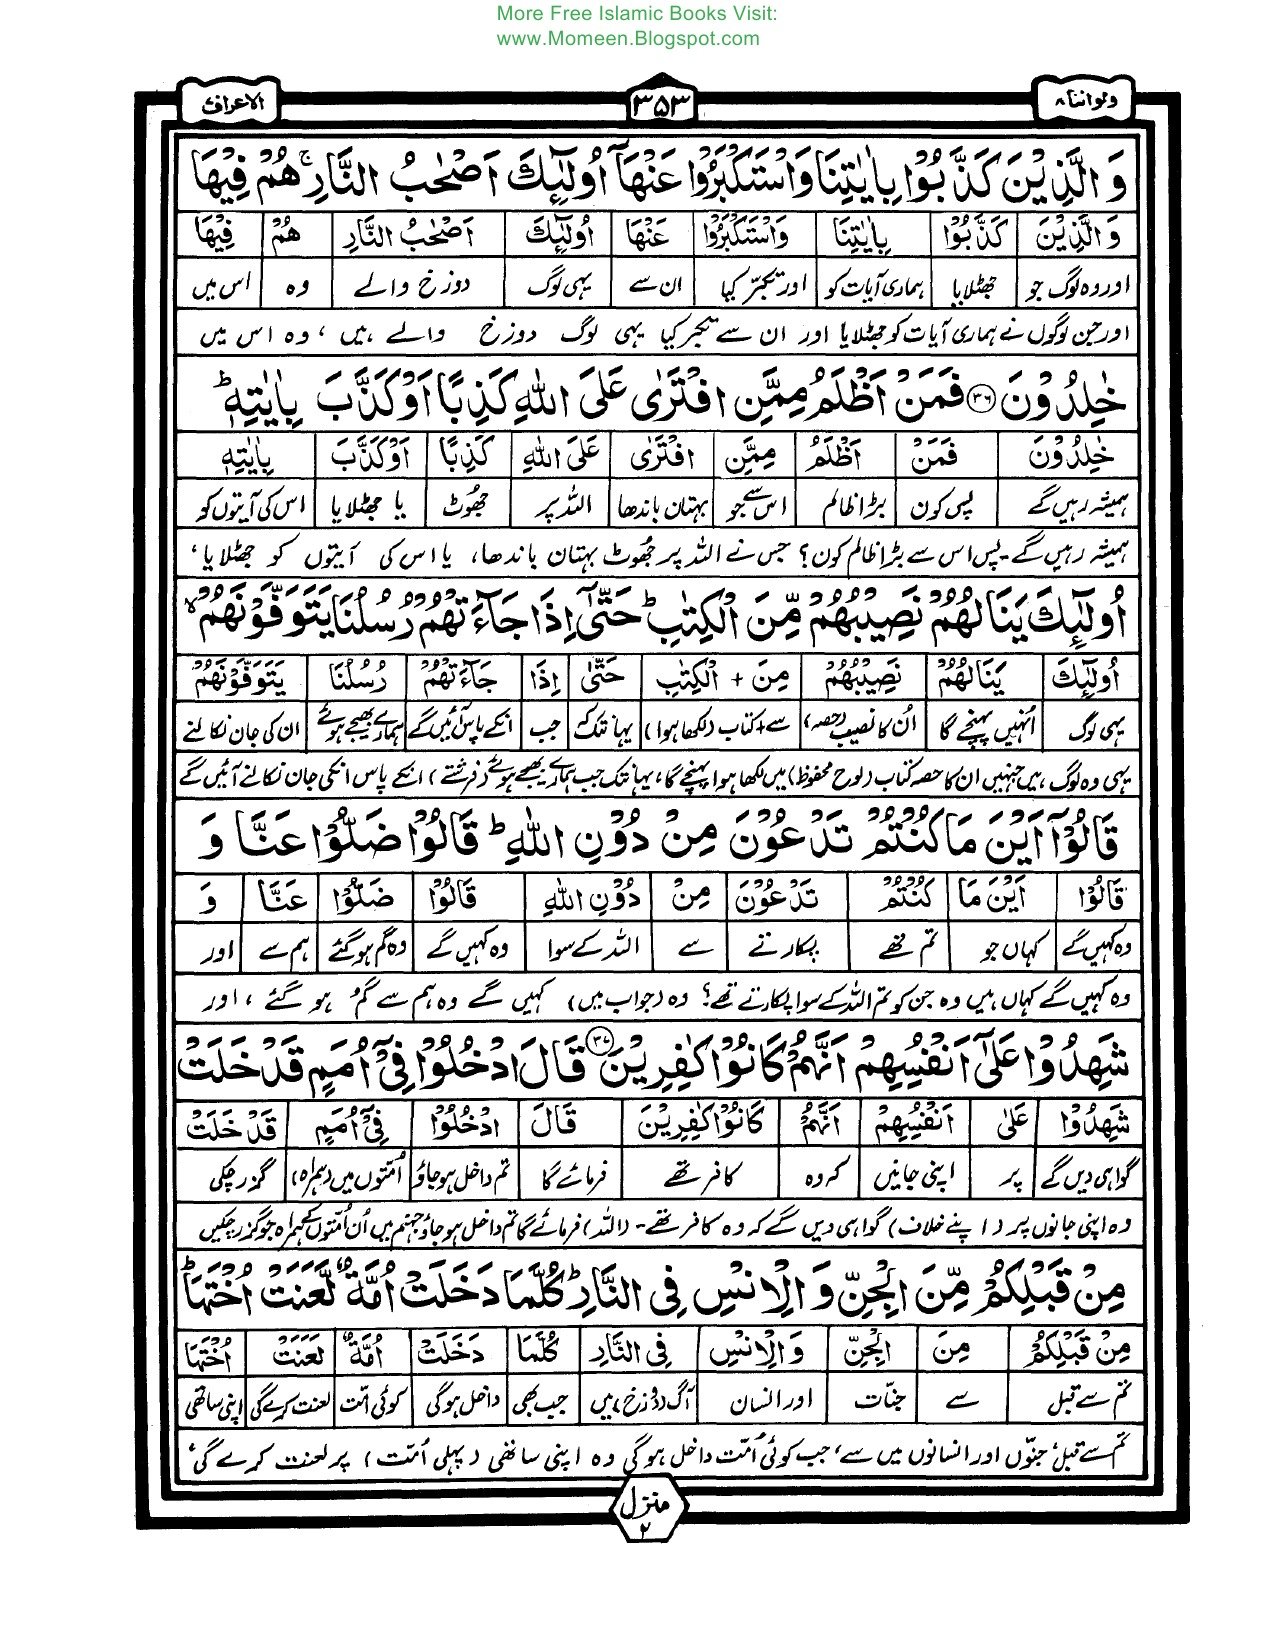 More Free Islamic Books Visit:
www.Momeen.Blogspot.com
ولواننا ۸ ۳۵۳ الاعراف
وَالَّذِیْنَ كَذَّبُوْا بِاٰیٰتِنَا وَاسْتَكْبَرُوْا عَنْهَاۤ اُولٰٓىِٕكَ اَصْحٰبُ النَّارِ ۚ هُمْ فِیْهَا
وَالَّذِیْنَ كَذَّبُوْا بِاٰیٰتِنَا وَاسْتَكْبَرُوْا عَنْهَا اُولٰٓىِٕكَ اَصْحٰبُ النَّارِ هُمْ فِیْهَا
اور وہ لوگ جو جھٹلایا ہماری آیات کو اور تکبر کیا ان سے یہی لوگ دوزخ والے وہ اس میں
اور جن لوگوں نے ہماری آیات کو جھٹلایا اور ان سے تکبر کیا یہی لوگ دوزخ والے ہیں، وہ اس میں
خٰلِدُوْنَ ۳۶ فَمَنْ اَظْلَمُ مِمَّنِ افْتَرٰی عَلَی اللّٰهِ كَذِبًا اَوْ كَذَّبَ بِاٰیٰتِهٖ ؕ
خٰلِدُوْنَ فَمَنْ اَظْلَمُ مِمَّنِ افْتَرٰی عَلَی اللّٰهِ كَذِبًا اَوْ كَذَّبَ بِاٰیٰتِهٖ
ہمیشہ رہیں گے پس کون بڑا ظالم اس سے جو بہتان باندھا اللہ پر جھوٹ یا جھٹلایا اس کی آیتوں کو
ہمیشہ رہیں گے۔ پس اس سے بڑا ظالم کون؟ جس نے اللہ پر جھوٹ بہتان باندھا، یا اس کی آیتوں کو جھٹلایا،
اُولٰٓىِٕكَ یَنَالُهُمْ نَصِیْبُهُمْ مِّنَ الْكِتٰبِ ؕ حَتّٰۤی اِذَا جَآءَتْهُمْ رُسُلُنَا یَتَوَفَّوْنَهُمْ ۙ
اُولٰٓىِٕكَ یَنَالُهُمْ نَصِیْبُهُمْ مِنَ + الْكِتٰبِ حَتّٰی اِذَا جَآءَتْهُمْ رُسُلُنَا یَتَوَفَّوْنَهُمْ
یہی لوگ انہیں پہنچے گا ان کا نصیب (حصہ) سے + کتاب (لکھا ہوا) یہانتک جب انکے پاس آئیں گے ہمارے بھیجے ہوئے ان کی جان نکالنے
یہی وہ لوگ ہیں جنہیں ان کا حصہ کتاب (لوح محفوظ) میں لکھا ہوا پہنچے گا، یہانتک جب ہمارے بھیجے ہوئے (فرشتے) انکے پاس انکی جان نکالنے آئیں گے
قَالُوْۤا اَیْنَ مَا كُنْتُمْ تَدْعُوْنَ مِنْ دُوْنِ اللّٰهِ ؕ قَالُوْا ضَلُّوْا عَنَّا وَ
قَالُوْا اَیْنَ مَا كُنْتُمْ تَدْعُوْنَ مِنْ دُوْنِ اللّٰهِ قَالُوْا ضَلُّوْا عَنَّا وَ
وہ کہیں گے کہاں جو تم تھے پکارتے سے اللہ کے سوا وہ کہیں گے وہ گم ہو گئے ہم سے اور
وہ کہیں گے کہاں ہیں وہ جن کو تم اللہ کے سوا پکارتے تھے؟ وہ (جواب میں) کہیں گے وہ ہم سے گم ہو گئے، اور
شَهِدُوْا عَلٰۤی اَنْفُسِهِمْ اَنَّهُمْ كَانُوْا كٰفِرِیْنَ ۳۷ قَالَ ادْخُلُوْا فِیْۤ اُمَمٍ قَدْ خَلَتْ
شَهِدُوْا عَلٰی اَنْفُسِهِمْ اَنَّهُمْ كَانُوْا كٰفِرِیْنَ قَالَ ادْخُلُوْا فِیْۤ اُمَمٍ قَدْ خَلَتْ
گواہی دیں گے پر اپنی جانیں کہ وہ کافر تھے فرمائے گا تم داخل ہو جاؤ امتوں میں (ہمراہ) گزر چکی
وہ اپنی جانوں پر (اپنے خلاف) گواہی دیں گے کہ وہ کافر تھے۔ (اللہ) فرمائے گا تم داخل ہو جاؤ جہنم میں ان امتوں کے ہمراہ جو گزر چکیں
مِنْ قَبْلِكُمْ مِّنَ الْجِنِّ وَالْاِنْسِ فِی النَّارِ ؕ كُلَّمَا دَخَلَتْ اُمَّةٌ لَّعَنَتْ اُخْتَهَا ؕ
مِنْ قَبْلِكُمْ مِنَ الْجِنِّ وَالْاِنْسِ فِی النَّارِ كُلَّمَا دَخَلَتْ اُمَّةٌ لَعَنَتْ اُخْتَهَا
تم سے قبل سے جنّات اور انسان آگ (دوزخ) میں جب بھی داخل ہو گی کوئی امت لعنت کرے گی اپنی ساتھی
تم سے قبل، جنّوں اور انسانوں میں سے، جب کوئی اُمّت داخل ہو گی وہ اپنی ساتھی (پہلی اُمّت) پر لعنت کرے گی،
منزل ۲